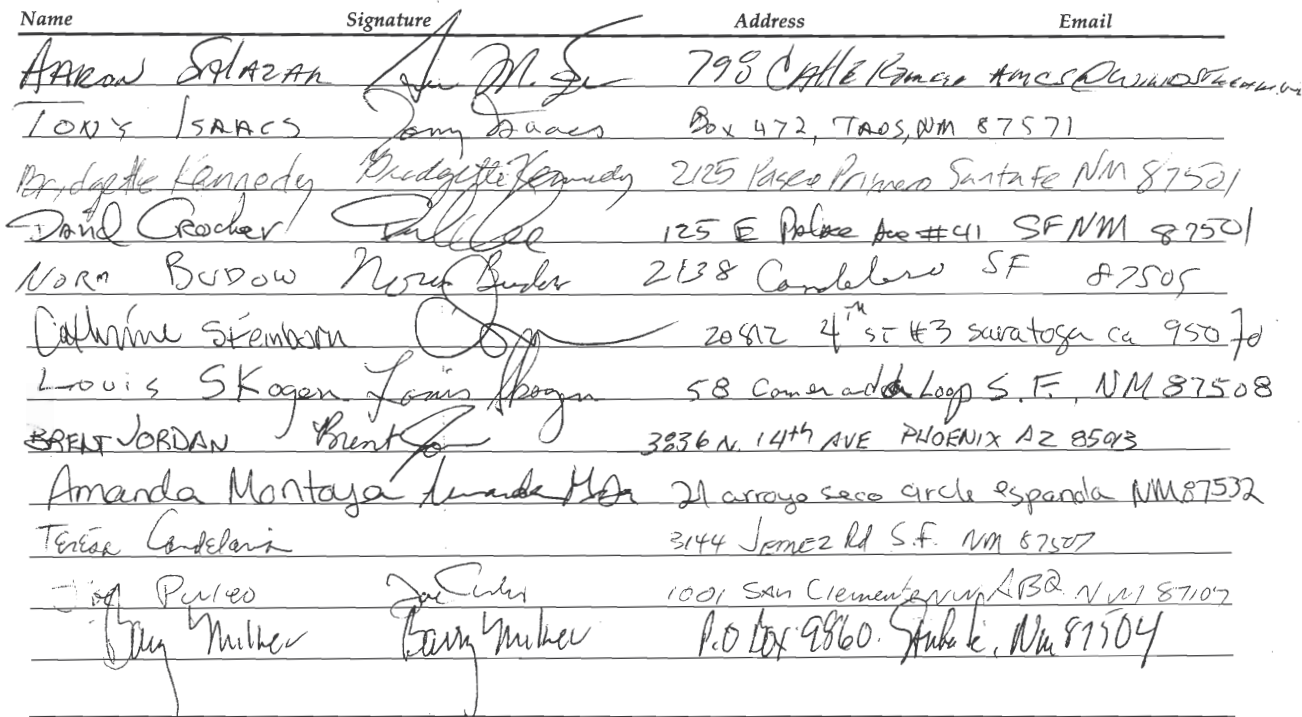 Name Signature Address Email
AARON SALAZAR 798 CALLE
TONY ISAACS Tony Isaacs Box 472, TAOS, NM 87571
Bridgette Kennedy Bridgette Kennedy 2125 Paseo Primero Santa Fe NM 87501
David Crocker 125 E Palace Ave #41 SF NM 87501
NORM BUDOW Norm Budow 2138 SF 87505
Cathrine Steinborn 20812 4TH ST #3 saratoga ca 95070
Louis Skogen Louis Skogen 58 Camerada Loop S.F., NM 87508
BRENT JORDAN Brent 3836 N. 14th AVE PHOENIX AZ 85013
Amanda Montoya Amanda 21 arroyo seco circle espanola NM 87532
Teresa Candelaria 3144 JEMEZ Rd S.F. NM 87507
Joe 1001 San Clemente NW ABQ NM 87107
Barry Milner Barry Milner P.O Box 9860. NM 87504